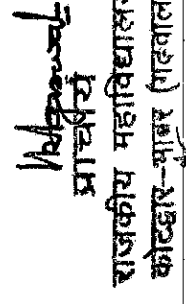 प्राचार्य
राजकीय महाविद्यालय
कोटद्वार-भाबर (गढ़वाल